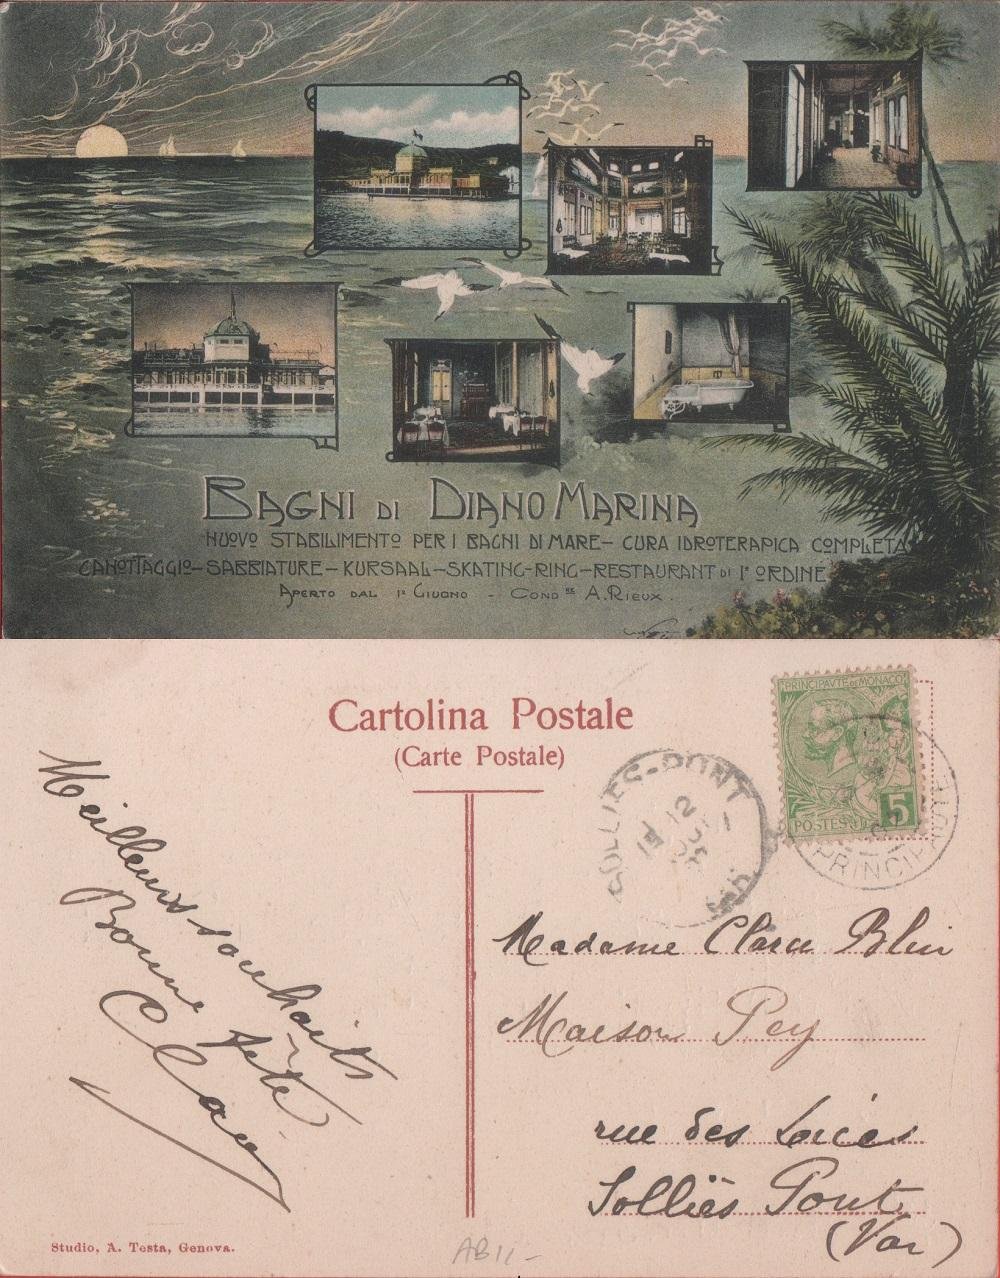 BAGNI DI DIANO MARINA
NUOVO STABILIMENTO PER I BAGNI DI MARE – CURA IDROTERAPICA COMPLETA
CANOTTAGGIO – SABBIATURE – KURSAAL – SKATING-RING – RESTAURANT DI 1º ORDINE
APERTO DAL 1º GIUGNO - COND RE A. RIEUX.
Cartolina Postale
(Carte Postale)
PRINCIPAVTE DE MONACO
POSTES
5
SOLLIES-PONT
12
VAR
PRINCIPAUTE
Meilleurs souhaits
Bonne fête
Madame Clara Blin
Maison Pey
rue des
Solliès Pont
(Var)
Studio, A. Testa, Genova.
AB11-